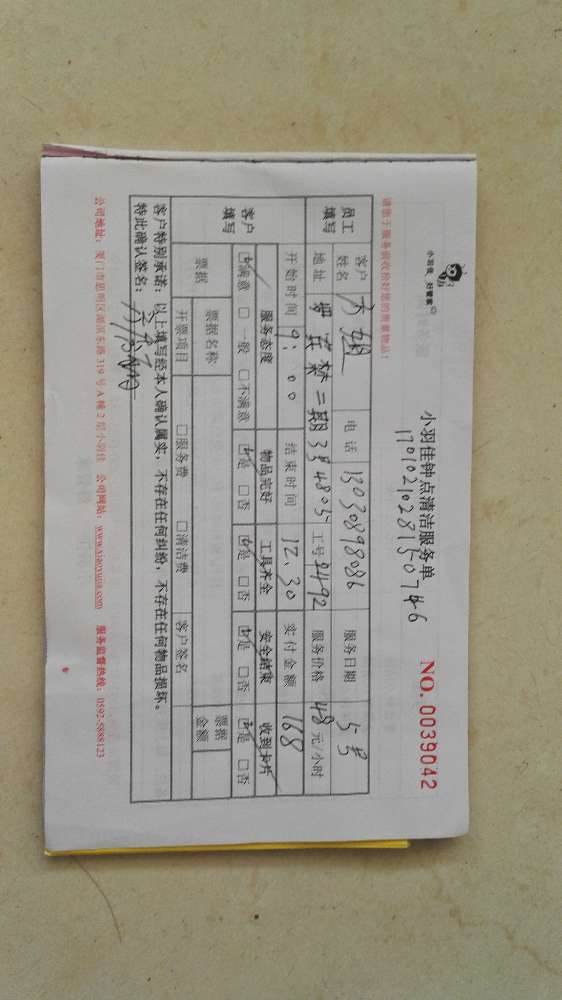 小羽佳 好管家
小羽佳钟点清洁服务单
NO. 0039042
请按于服务前收拾好您的贵重物品！
员工填写 客户姓名 方姐 电话 13030898086 服务日期 5号
地址 二期3号4805 工号 2492 服务价格 48 元/小时
开始时间 9:00 结束时间 12.30 实付金额 168
客户填写 服务态度 物品完好 工具齐全 安全结束 收到卡片
☑满意 □一般 □不满意 ☑是 □否 ☑是 □否 ☑是 □否 ☑是 □否
票据 票据名称 票据金额
开票项目 □服务费 □清洁费 客户签名
客户特别承诺：以上填写经本人确认属实，不存在任何纠纷，不存在任何物品损坏。
特此确认签名：
公司地址：厦门市思明区湖滨东路319号A幢2层小羽佳 公司网站：www.xiaoyujia.com 服务监督热线：0592-5888123